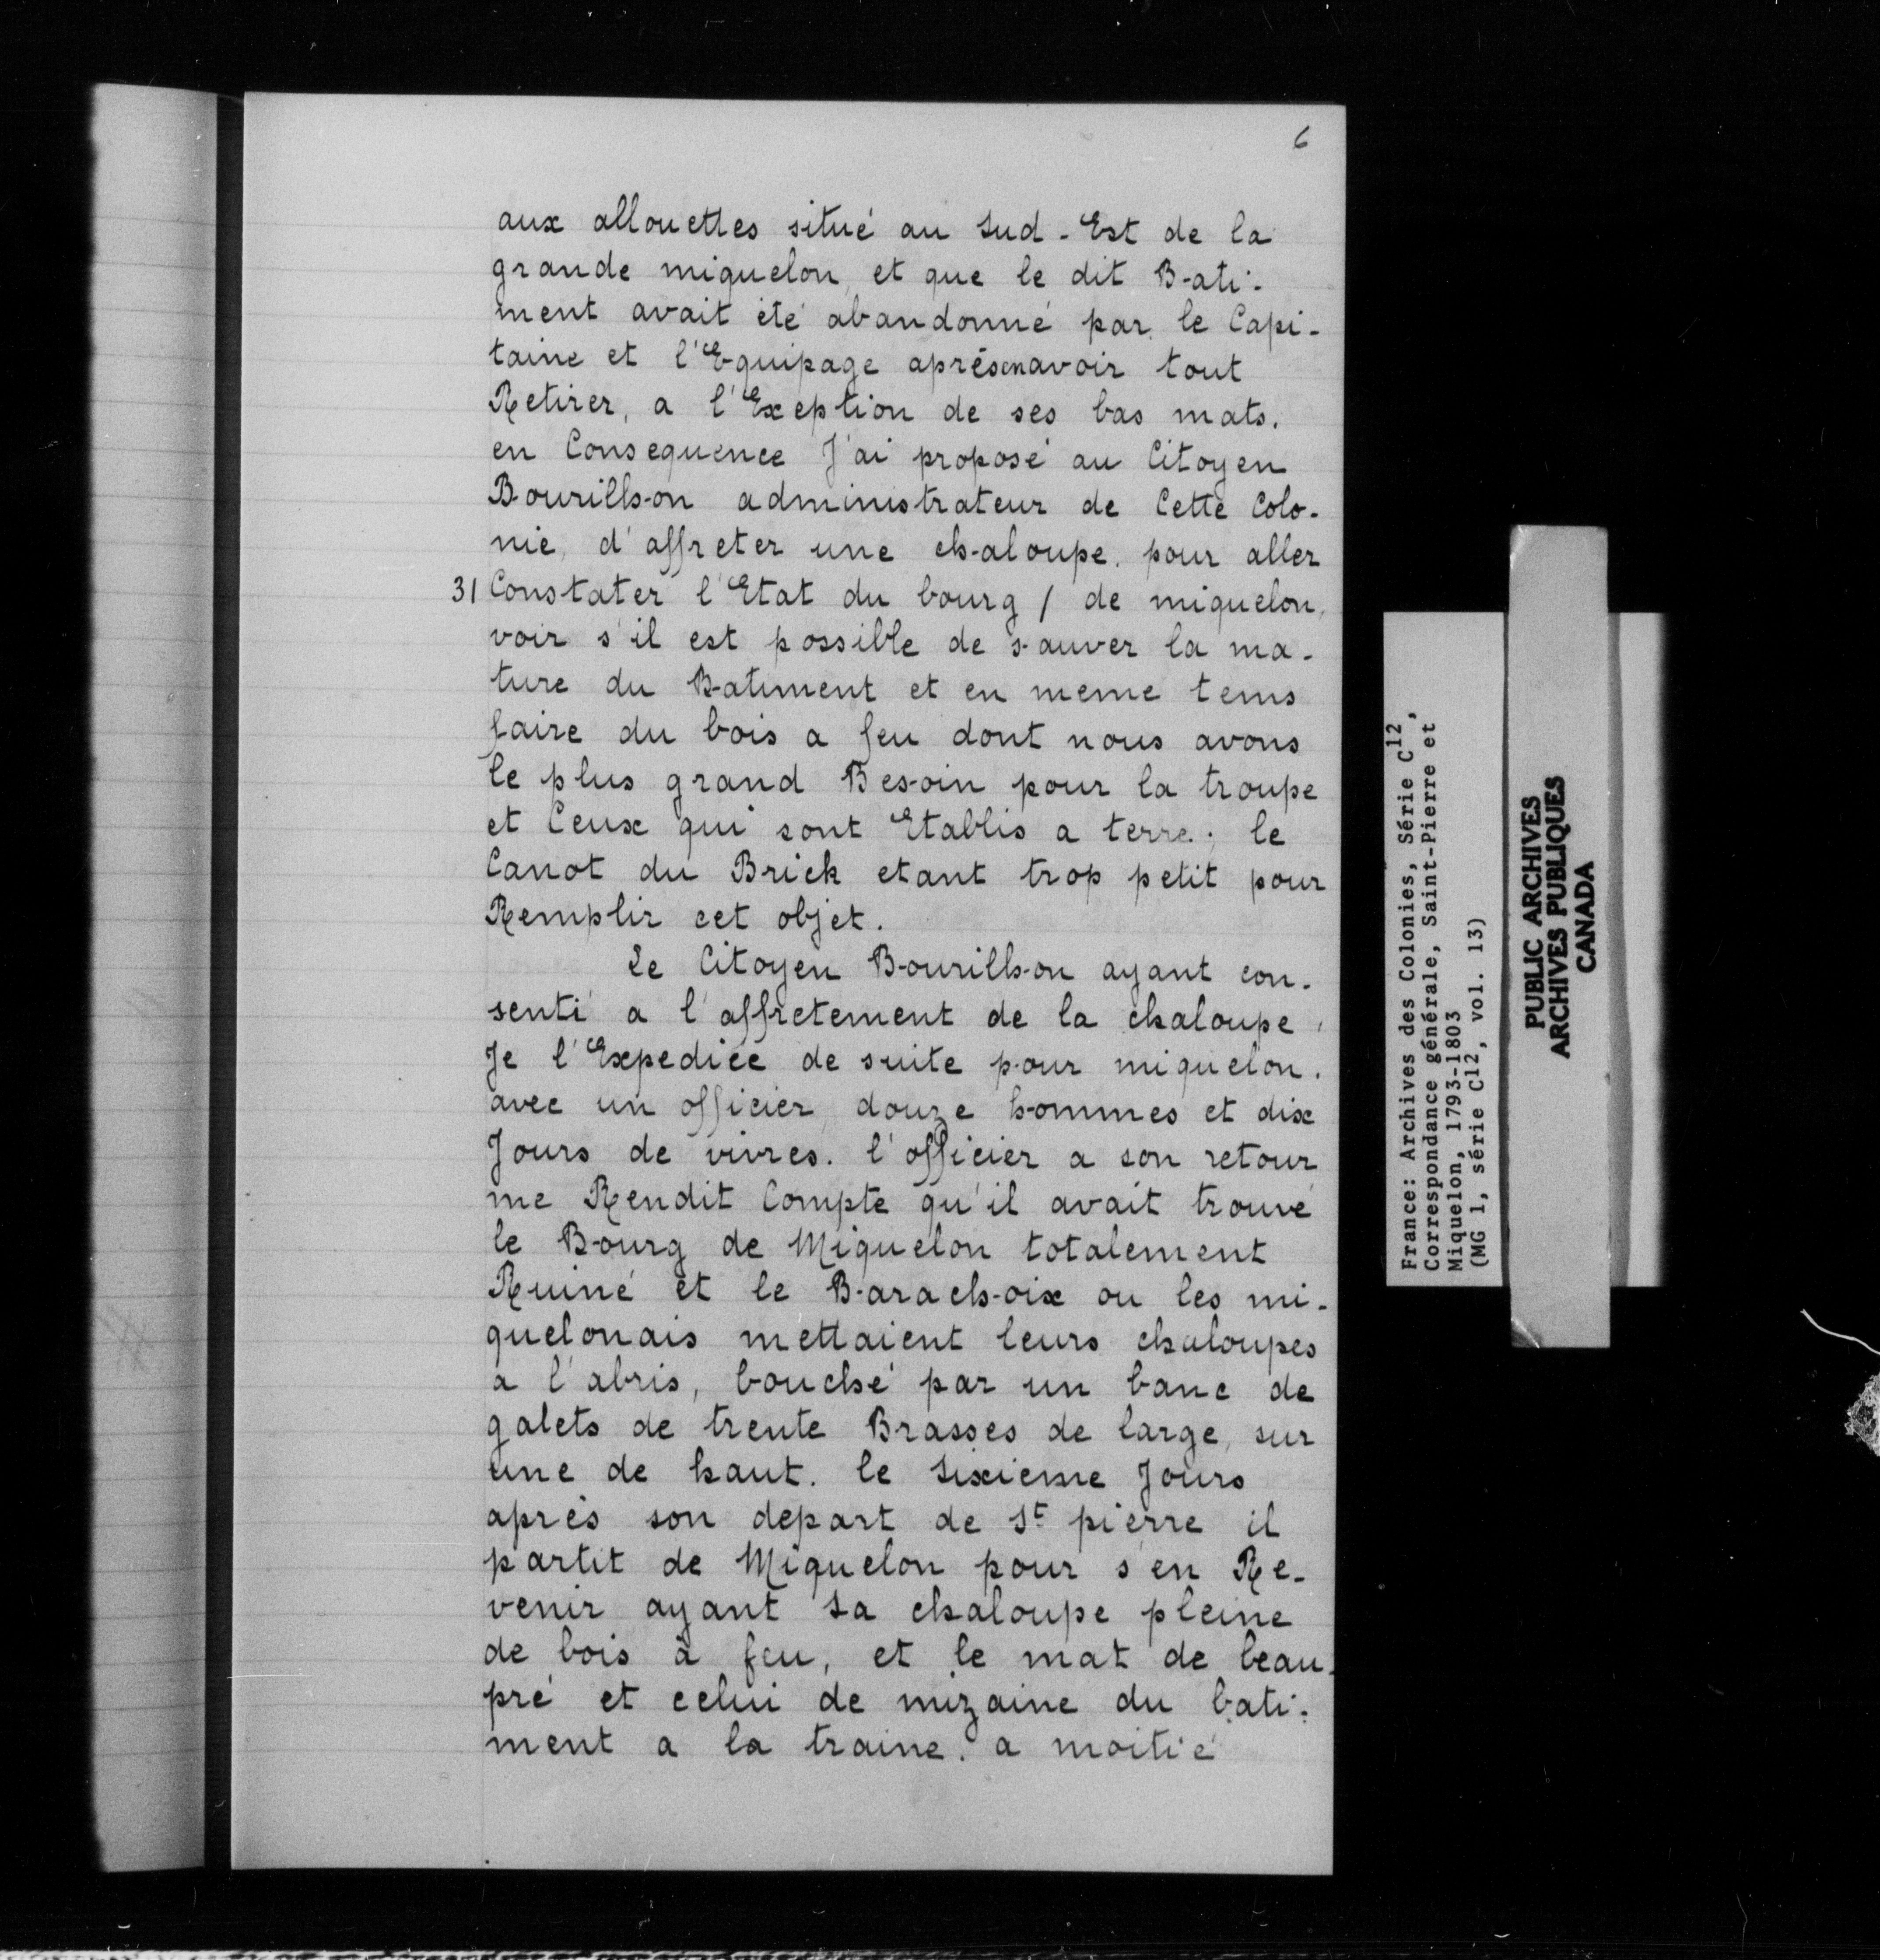 6
aux allouettes situé au Sud-Est de la
grande miquelon, et que le dit Bati-
ment avait été abandonné par le Capi-
taine et l'Equipage aprésenavoir tout
Retirer, a l'Exeption de ses bas mats.
en Consequence J'ai proposé au Citoyen
Bourilhon administrateur de Cette Colo-
nie, d'affreter une chaloupe. pour aller
31 Constater l'Etat du bourg / de miquelon,
voir s'il est possible de sauver la ma-
ture du Batiment et en meme tems
faire du bois a feu dont nous avons
le plus grand Besoin pour la troupe
et Ceux qui sont Etablis a terre; le
Canot du Brick etant trop petit pour
Remplir cet objet.
Le Citoyen Bourilhon ayant con-
senti a l'affretement de la chaloupe,
Je l'Expediée de suite pour miquelon.
avec un officier, douze hommes et dix
Jours de vivres. l'officier a son retour
me Rendit Compte qu'il avait trouvé
le Bourg de Miquelon totalement
Ruiné et le Barachoix ou les mi-
quelonais mettaient leurs chaloupes
a l'abris, bouché par un banc de
galets de trente Brasses de large, sur
une de haut. le Sixieme Jours
aprés son depart de St pierre il
partit de Miquelon pour s'en Re-
venir ayant Sa chaloupe pleine
de bois à feu, et le mat de beau-
pré et celui de mizaine du bati-
ment a la traine. a moitié
France: Archives des Colonies, Série C12,
Correspondance générale, Saint-Pierre et
Miquelon, 1793-1803
(MG 1, série C12, vol. 13)
PUBLIC ARCHIVES
ARCHIVES PUBLIQUES
CANADA